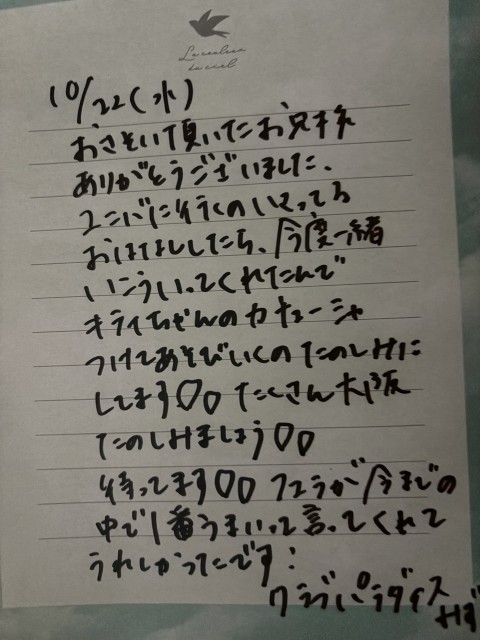 La couleur
du ciel
10/22(水)
おさそい頂いたお兄様
ありがとうございました、
ユニバに行くのいってる
おはなししたら、今度一緒
いこういってくれたんで
キティちゃんのカチューシャ
つけてあそびいくのたのしみに
してます♡♡たくさん大阪
たのしみましょう♡♡
待ってます♡♡フェラが今までの
中で1番うまいって言ってくれて
うれしかったです!
クラブパラダイス